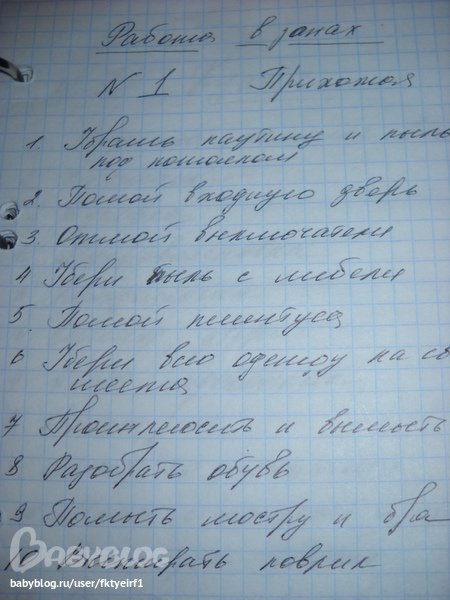 Работа в зонах
N 1 Прихожая
1. Убрать паутину и пыль
под потолком
2. Помой входную дверь
3. Отмой выключатели
4 Убери пыль с мебели
5. Помой плинтуса
6 Убери всю одежду на св
места
7 Пропылесосить и вымыть
8 Разобрать обувь
9 Помыть люстру и бра
10 Постирать коврик
BABYBLOG
babyblog.ru/user/fktyeirf1